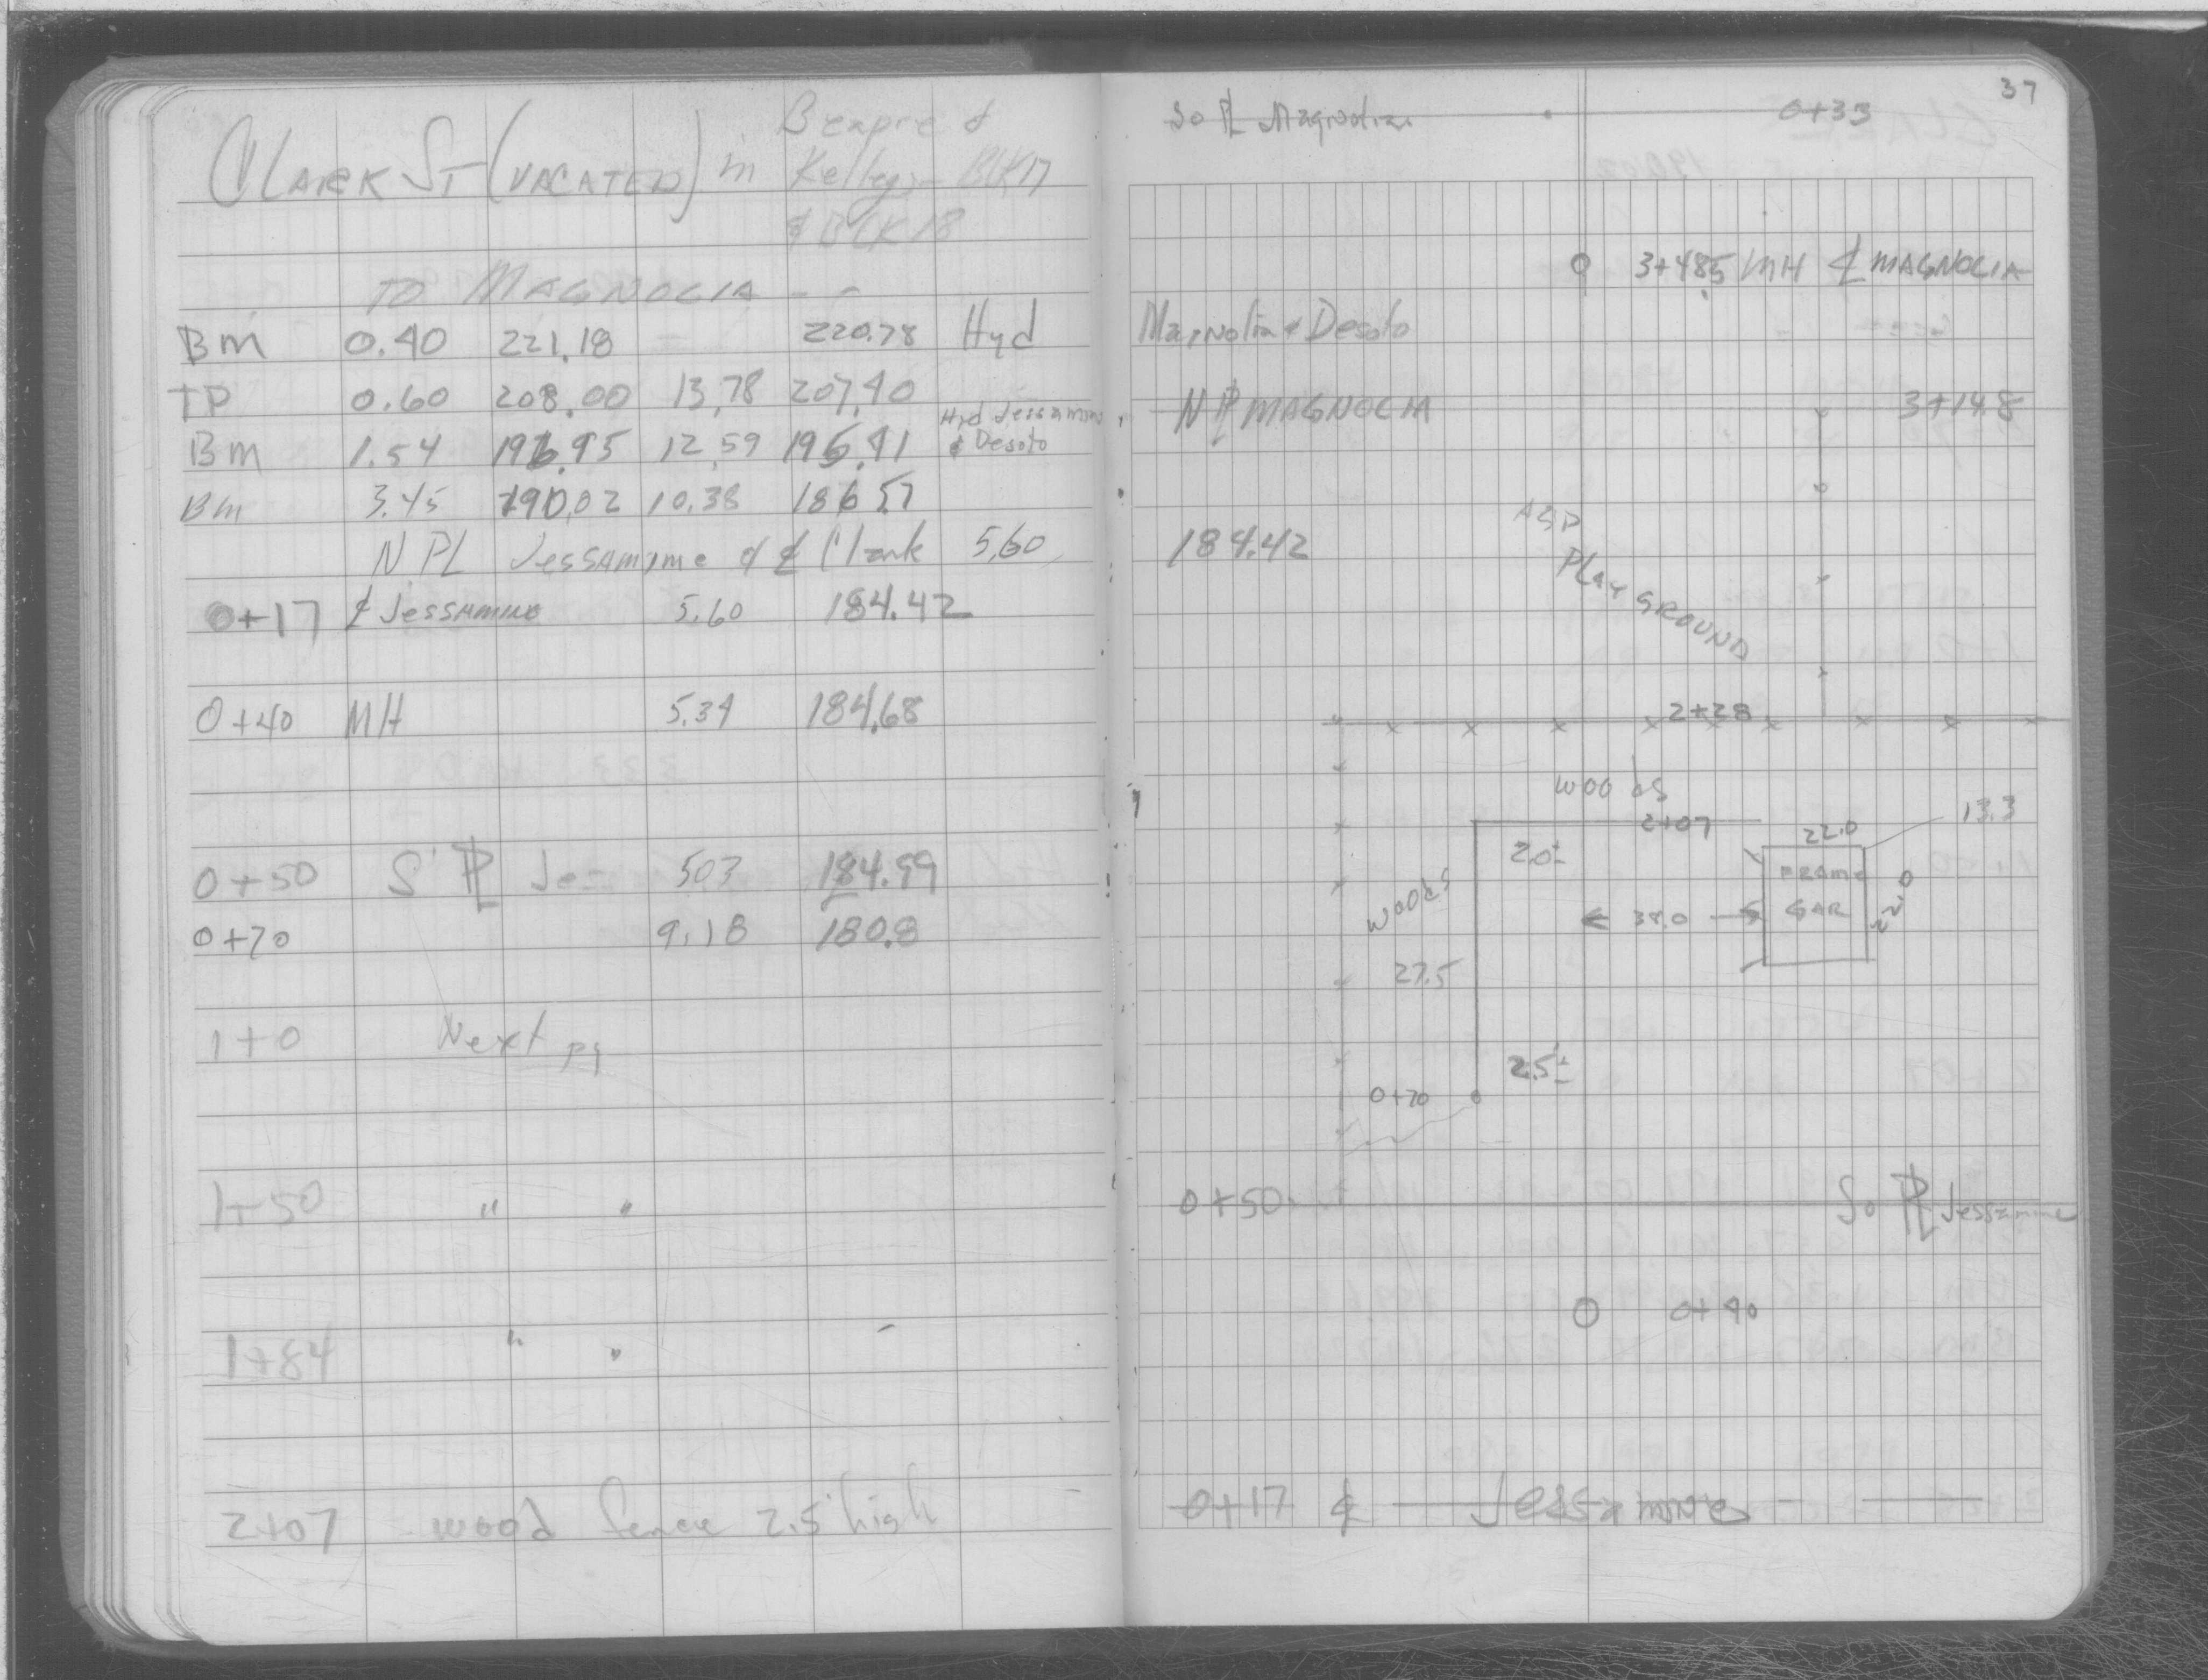 CLARK ST (VACATED) in Beapre &
Kelleys BLK 17
& BLK 18
TO MAGNOLIA - -
BM 0.40 221.18 220.78 Hyd
TP 0.60 208.00 13.78 207.40
BM 1.54 196.95 12.59 195.41 Hyd Jessamine
& Desoto
BM 3.45 190.02 10.38 186.57
N PL Jessamine & ℄ Clark 5.60
0+17 ℄ Jessamine 5.60 184.42
0+40 MH 5.34 184.68
0+50 S' PL Jes 503 184.99
0+70 9.18 180.8
1+0 Next pg
1+50 " "
1+84 " "
2+07 wood fence 2.5' high
37
So PL Magnolia 0+33
3+48.5 MH ℄ MAGNOLIA
Magnolia & Desoto
N PL MAGNOLIA 3+14.8
184.42
ASP
PLAY GROUND
2+28
woods
2+07
22.0
13.3
2.0±
FRAME
GAR
22.0
38.0
woods
27.5
2.5'±
0+70
0+50
So PL Jessamine
0+40
0+17 ℄ Jessamine